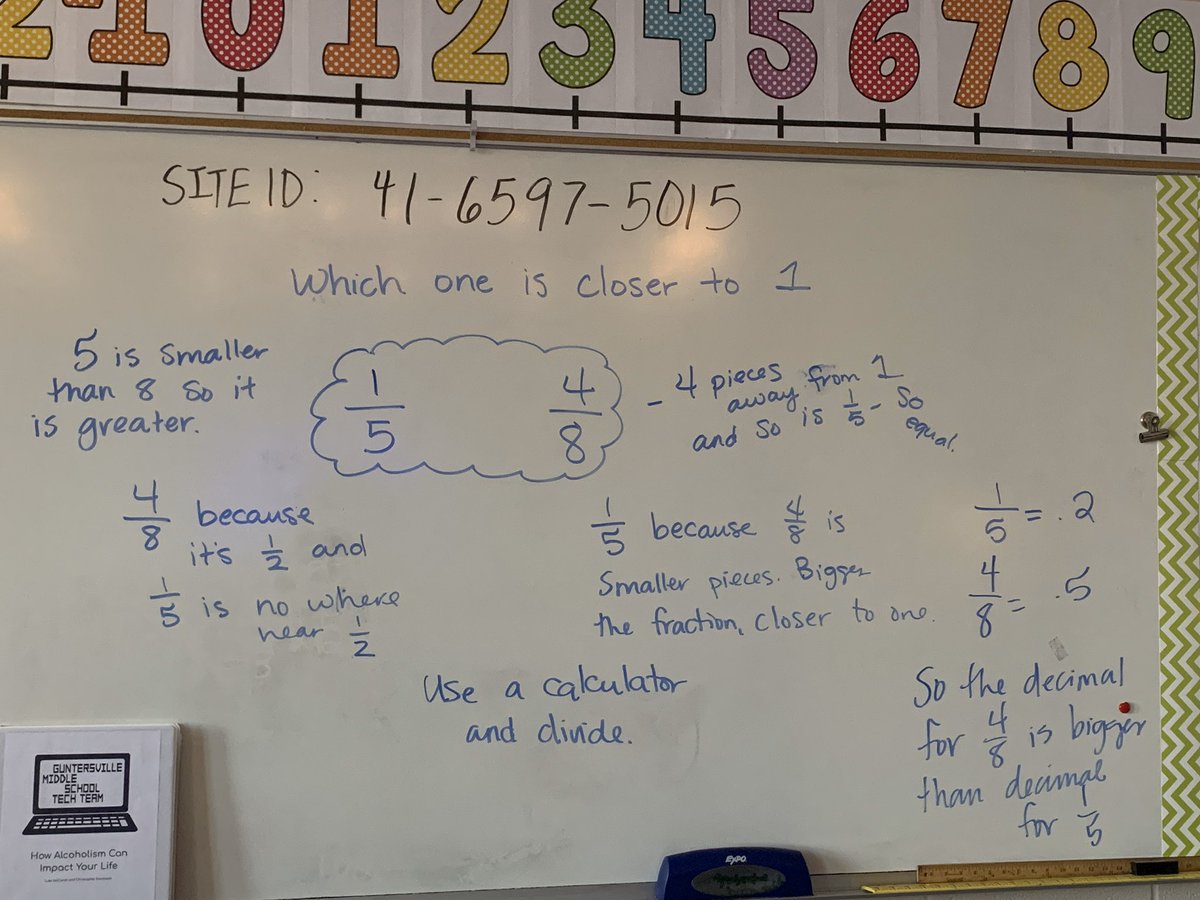 2 -1 0 1 2 3 4 5 6 7 8 9
SITE ID: 41-6597-5015
Which one is closer to 1
5 is smaller
than 8 so it
is greater.
1/5
4/8
- 4 pieces
away from 1
and so is 1/5 - so
equal.
4/8 because
it's 1/2 and
1/5 is no where
near 1/2
1/5 because 4/8 is
smaller pieces. Bigger
the fraction, closer to one.
1/5 = .2
4/8 = .5
Use a calculator
and divide.
So the decimal
for 4/8 is bigger
than decimal
for 1/5
GUNTERSVILLE
MIDDLE
SCHOOL
TECH TEAM
How Alcoholism Can
Impact Your Life
EXPO